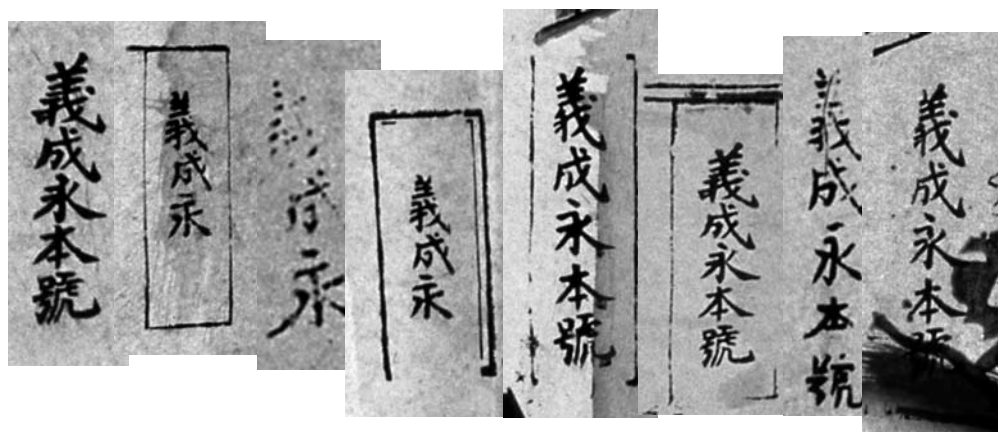 義成永本號
義成永
義成永
義成永
義成永本號
義成永本號
義成永本號
義成永本號